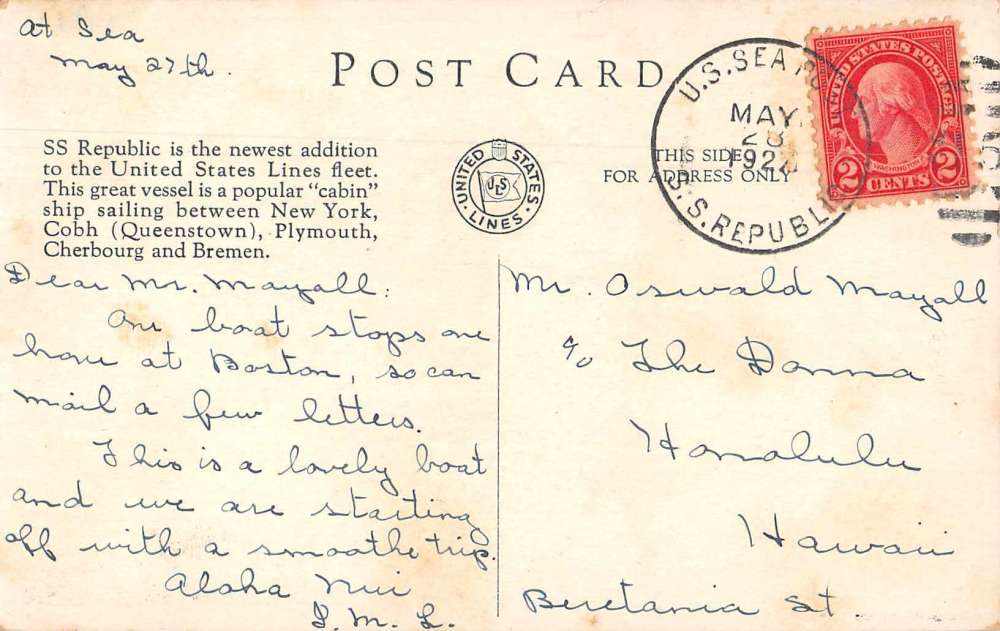 At Sea
May 27th.
POST CARD
SS Republic is the newest addition
to the United States Lines fleet.
This great vessel is a popular "cabin"
ship sailing between New York,
Cobh (Queenstown), Plymouth,
Cherbourg and Bremen.
UNITED STATES
USL
LINES
THIS SIDE
FOR ADDRESS ONLY
U.S. SEA
MAY
28
S.S. REPUBLIC
UNITED STATES POSTAGE
WASHINGTON
2 CENTS 2
Dear Mr. Mayall:
Our boat stops one
hour at Boston, so can
mail a few letters.
This is a lovely boat
and we are starting
off with a smoothe trip.
Aloha Nui
M. L.
Mr. Oswald Mayall
c/o The Donna
Honolulu
Hawaii
Beretania St.